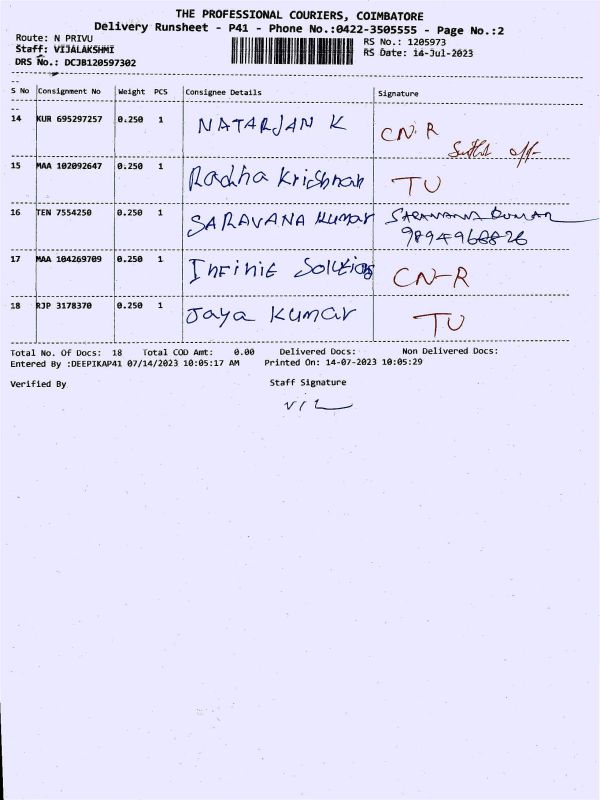 THE PROFESSIONAL COURIERS, COIMBATORE
Delivery Runsheet - P41 - Phone No.:0422-3505555 - Page No.:2
Route: N PRIVU
RS No.: 1205973
Staff: VIJALAKSHMI
RS Date: 14-Jul-2023
DRS No.: DCJB120597302
S No Consignment No Weight PCS Consignee Details Signature
14 KUR 695297257 0.250 1 NATARJAN K CN-R
15 MAA 102092647 0.250 1 Radha Krishnan TU
16 TEN 7554250 0.250 1 SARAVANA Kumar SARAVANA KUMAR
17 MAA 104269709 0.250 1 Infinit Solutions CN-R
18 RJP 3178370 0.250 1 Jaya Kumar TU
Total No. Of Docs: 18 Total COD Amt: 0.00 Delivered Docs: Non Delivered Docs:
Entered By :DEEPIKAP41 07/14/2023 10:05:17 AM Printed On: 14-07-2023 10:05:29
Verified By Staff Signature